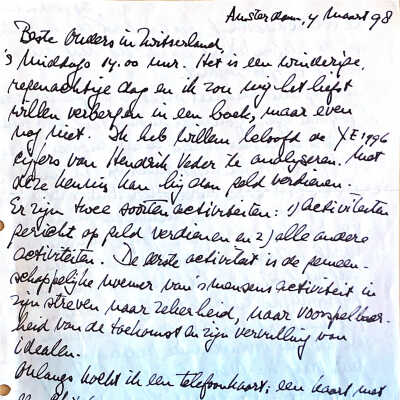 Amsterdam, 4 maart 98
Beste Ouders in Zwitserland,
's middags 14.00 uur. Het is een winderige,
regenachtige dag en ik zou mij het liefst
willen verbergen in een boek, maar even
nog niet. Ik heb Willem beloofd de YE 1996
cijfers van Hendrik Veder te analyseren. Met
deze kennis kan hij dan geld verdienen.
Er zijn twee soorten activiteiten: 1) activiteiten
gericht op geld verdienen en 2) alle andere
activiteiten. De eerste activiteit is de gemeen-
schappelijke noemer van 's mensens activiteit in
zijn streven naar zekerheid, naar voorspelbaar-
heid van de toekomst en zijn vervulling van
idealen.
Onlangs kocht ik een telefoonkaart; een kaart met